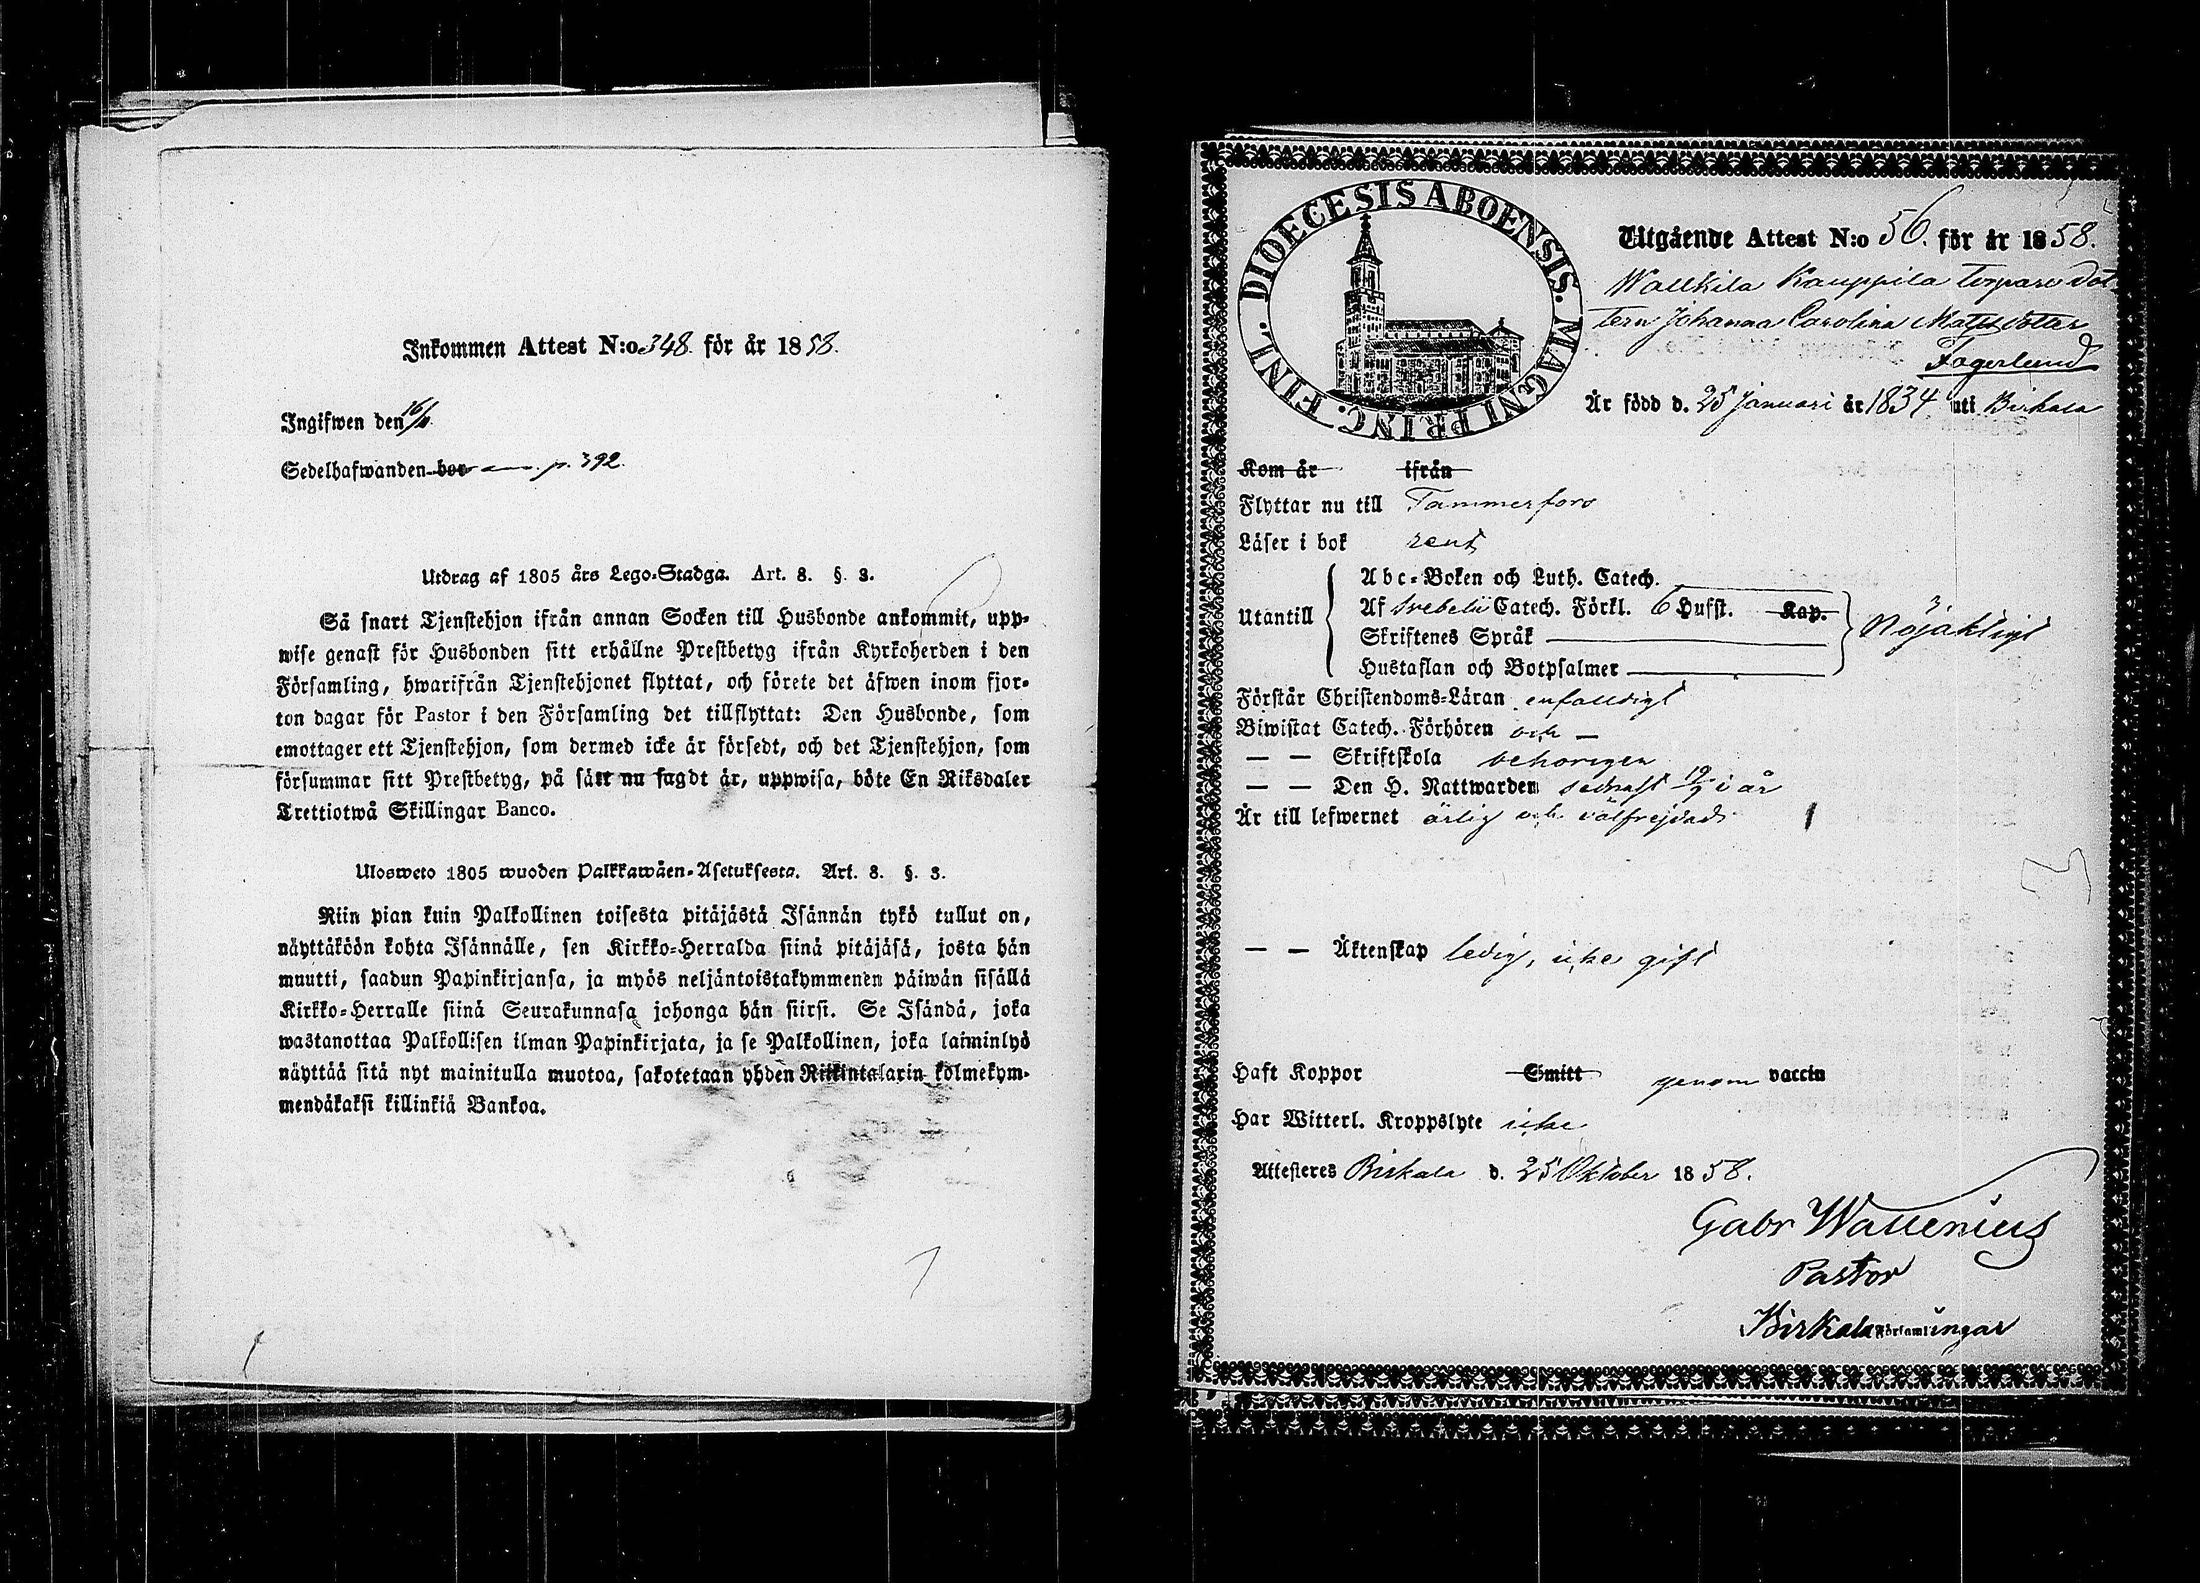 Inkommen Attest N:o 348. för år 1858.
Ingifwen den 16/11
Sedelhafwanden bor p. 392.
Utdrag af 1805 års Lego-Stadga. Art. 8. §. 3.
Så snart Tjenstehjon ifrån annan Socken till Husbonde ankommit, upp-
wise genast för Husbonden sitt erhållne Prestbetyg ifrån Kyrkoherden i den
Församling, hwarifrån Tjenstehjonet flyttat, och förete det äfwen inom fjor-
ton dagar för Pastor i den Församling det tillflyttat: Den Husbonde, som
emottager ett Tjenstehjon, som dermed icke är försedt, och det Tjenstehjon, som
försummar sitt Prestbetyg, på sätt nu sagdt är, uppwisa, böte En Riksdaler
Trettiotwå Skillingar Banco.
Ulosweto 1805 wuoden Palkkawäen-Asetuksesta. Art. 8. §. 3.
Niin pian kuin Palkollinen toisesta pitäjästä Isännän tykö tullut on,
näyttäköön kohta Isännälle, sen Kirkko-Herralda siinä pitäjäsä, josta hän
muutti, saadun Papinkirjansa, ja myös neljäntoistakymmenen päiwän sisällä
Kirkko-Herralle siinä Seurakunnasa johonga hän siirsi. Se Isändä, joka
wastanottaa Palkollisen ilman Papinkirjata, ja se Palkollinen, joka laiminlyö
näyttää sitä nyt mainitulla muotoa, sakotetaan yhden Riikintalarin kolmekym-
mendäkaksi killinkiä Bankoa.
FINL. DIOECESIS ABOENSIS. MAGNI PRINC.
Utgående Attest N:o 56. för år 1858.
Wallkila Kauppila torpare dot-
tern Johanna Carolina Matsdotter
Fagerlund
Är född d. 25 Januari år 1834 uti Birkala
Kom år ifrån
Flyttar nu till Tammerfors
Läser i bok rent
Utantill
Abc-Boken och Luth. Catech.
Af Svebelii Catech. Förkl. 6 Hufst. Kap.
Skriftenes Språk
Hustaflan och Botpsalmer
Nöjaktigt
Förstår Christendoms-Läran enfaldigt
Biwistat Catech. Förhören och —
— — Skriftskola behörigen
— — Den H. Nattwarden sednast i år
Är till lefwernet ärlig och välfrejdad
— — Äktenskap ledig, icke gift
Haft Koppor Smitt genom vaccin
Har Witterl. Kroppslyte icke
Attesteres Birkala d. 25 Oktober 1858.
Gabr Wallenius
Pastor
Birkala Församlingar